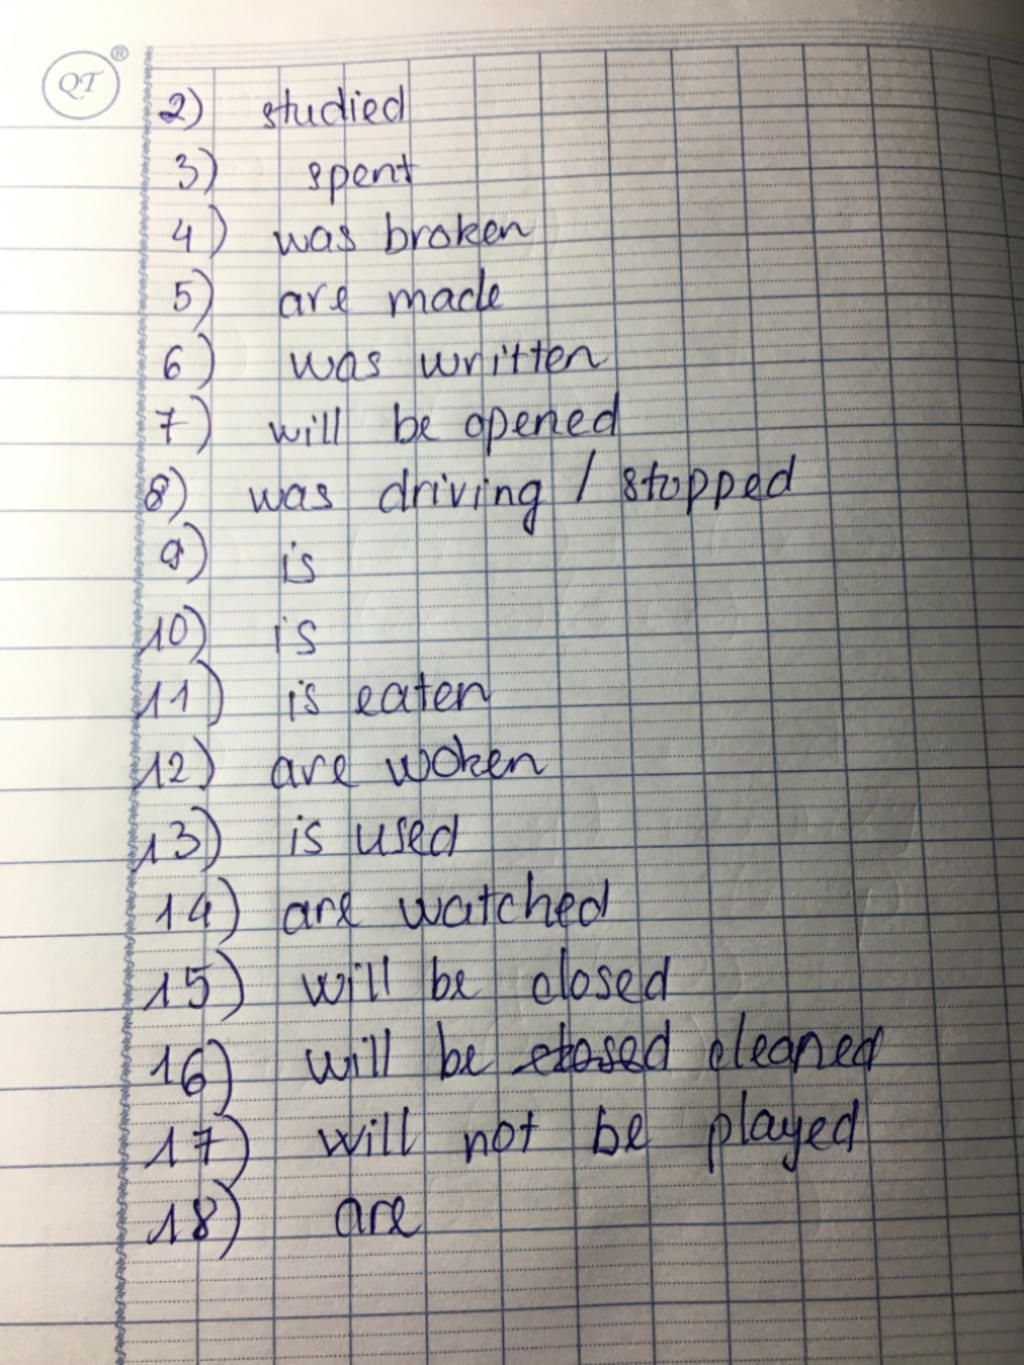 QT®
2) studied
3) spent
4) was broken
5) are made
6) was written
7) will be opened
8) was driving / stopped
9) is
10) is
11) is eaten
12) are woken
13) is used
14) are watched
15) will be closed
16) will be closed cleaned
17) will not be played
18) are